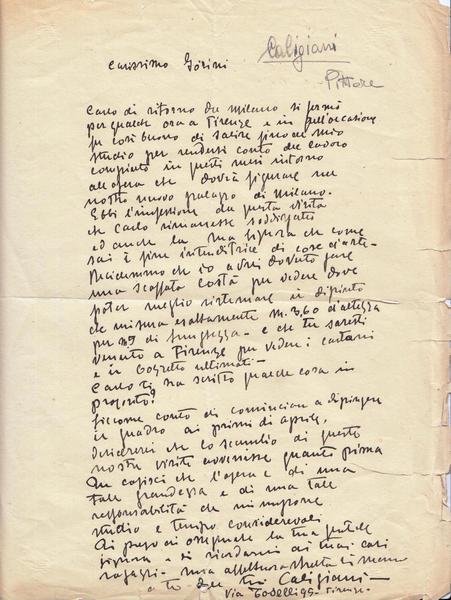 Caligiani
Pittore
Carissimo Gorini
Carlo di ritorno da Milano si fermò
per qualche ora a Firenze e in quell'occasione
fu così buono di salire fino al mio
studio per rendersi conto del lavoro
compiuto in questi mesi intorno
all'opera che dovrà figurare nel
nostro nuovo palazzo di Milano.
Ebbi l'impressione da questa visita
che Carlo rimanesse soddisfatto
ed anche la sua signora che come
sai è fine intenditrice di cose d'arte.
che io avrei dovuto fare
una scappata costà per vedere dove
poter meglio sistemare il dipinto
che misura esattamente m. 3,60 d'altezza
per di lunghezza - e che tu saresti
venuto a Firenze per vedere i cartoni
e il bozzetto ultimati -
Carlo ti ha scritto qualche cosa in
proposito?
Siccome conto di cominciare a dipingere
il quadro ai primi di aprile,
desidererei che lo scambio di queste
nostre visite avvenisse quanto prima
Tu capisci che l'opera è di una
tale grandezza e di una tale
responsabilità che mi impone
studio e tempo considerevoli
Ti prego di ossequiare la tua gentile
signora - di ricordarmi ai tuoi cari
ragazzi - una affettuosa stretta di mano
a te dal tuo Caligiani -
Via 99 - Firenze -